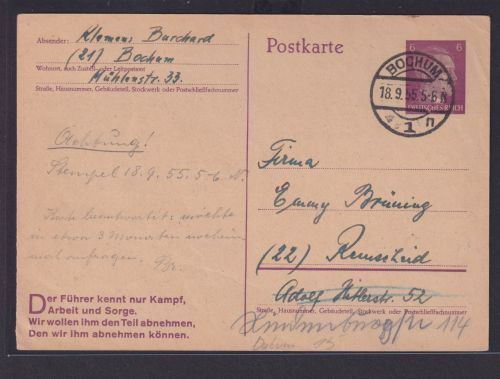 Absender: Klemens Burchard
(21) Bochum
Wohnort, auch Zustell- oder Leitpostamt
Mühlenstr. 33.
Straße, Hausnummer, Gebäudeteil, Stockwerk oder Postschließfachnummer
Postkarte
6 6
DEUTSCHES REICH
BOCHUM
18.9.55.5-6 N
1 n
Achtung!
Stempel 18.9.55.5-6. N.
Karte beantwortet: möchte
in etwa 3 Monaten nochein
mal anfragen. Br.
Firma
Emmy Brüning
(22) Remscheid
Adolf Hitlerstr. 52
Straße, Hausnummer, Gebäudeteil, Stockwerk oder Postschließfachnummer
114
Der Führer kennt nur Kampf,
Arbeit und Sorge.
Wir wollen ihm den Teil abnehmen,
Den wir ihm abnehmen können.